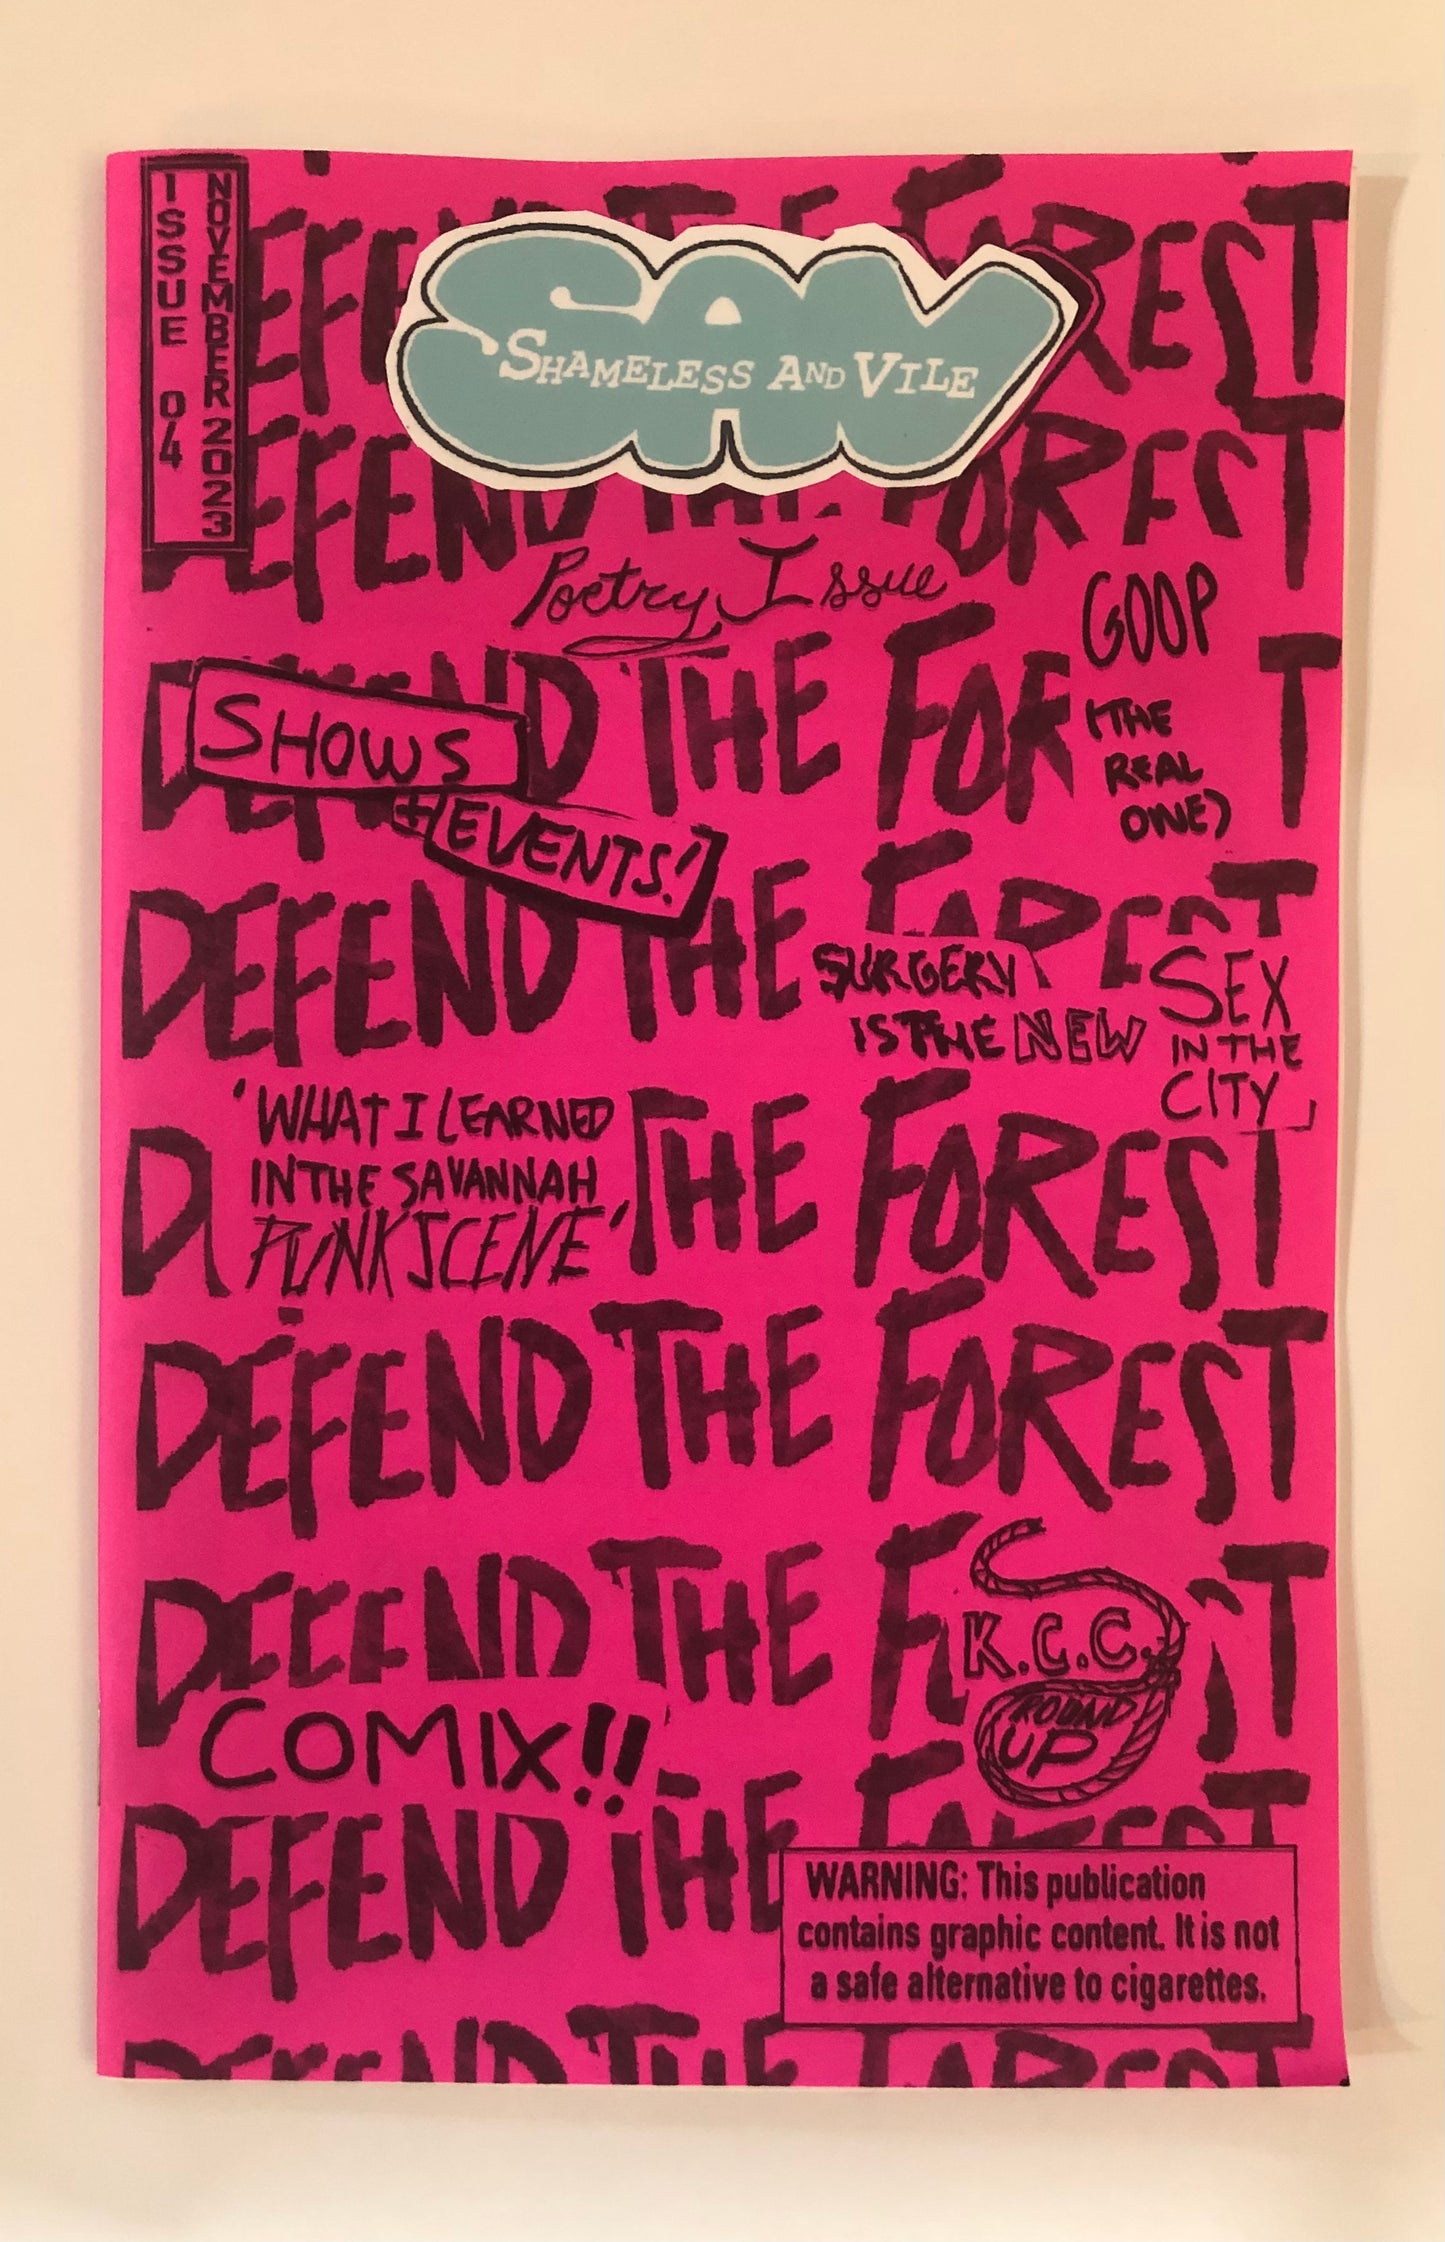 ISSUE 04
NOVEMBER 2023
DEFEND THE FOREST
SAV
SHAMELESS AND VILE
DEFEND THE FOREST
Poetry Issue
GOOP
(THE
REAL
ONE)
DEFEND THE FOR T
SHOWS
+ EVENTS!
DEFEND THE FOREST
SURGERY
IS THE NEW
SEX
IN THE
CITY
'WHAT I LEARNED
IN THE SAVANNAH
PUNK SCENE'
D THE FOREST
DEFEND THE FOREST
DEFEND THE F ST
K.C.C.
ROUND
UP
COMIX!!
DEFEND THE FOREST
WARNING: This publication
contains graphic content. It is not
a safe alternative to cigarettes.
DEFEND THE FOREST